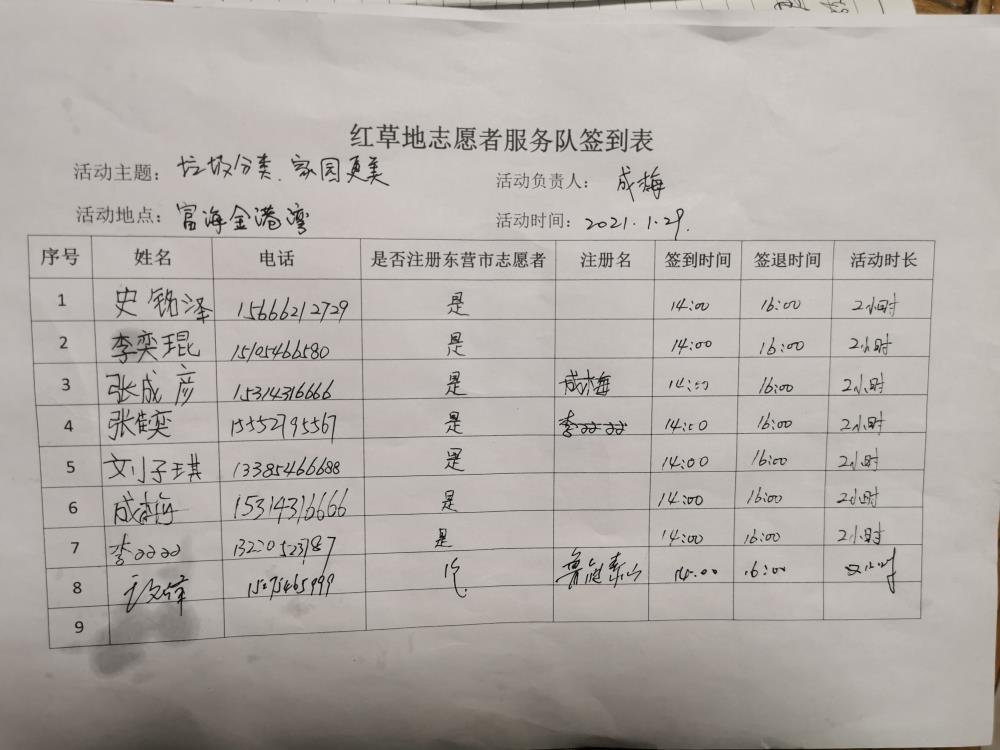 红草地志愿者服务队签到表
活动主题：垃圾分类、家园更美 活动负责人：成梅
活动地点：富海金港湾 活动时间：2021.1.29.
序号 姓名 电话 是否注册东营市志愿者 注册名 签到时间 签退时间 活动时长
1 史铭泽 15666212729 是 14:00 16:00 2小时
2 李奕琨 15105466580 是 14:00 16:00 2小时
3 张成彦 15314316666 是 成梅 14:00 16:00 2小时
4 张隹奕 15552795567 是 李 14:00 16:00 2小时
5 刘子琪 13385466688 是 14:00 16:00 2小时
6 成梅 15314316666 是 14:00 16:00 2小时
7 李 13220523187 是 14:00 16:00 2小时
8 15075465999 泰山 14:00 16:00 2小时
9